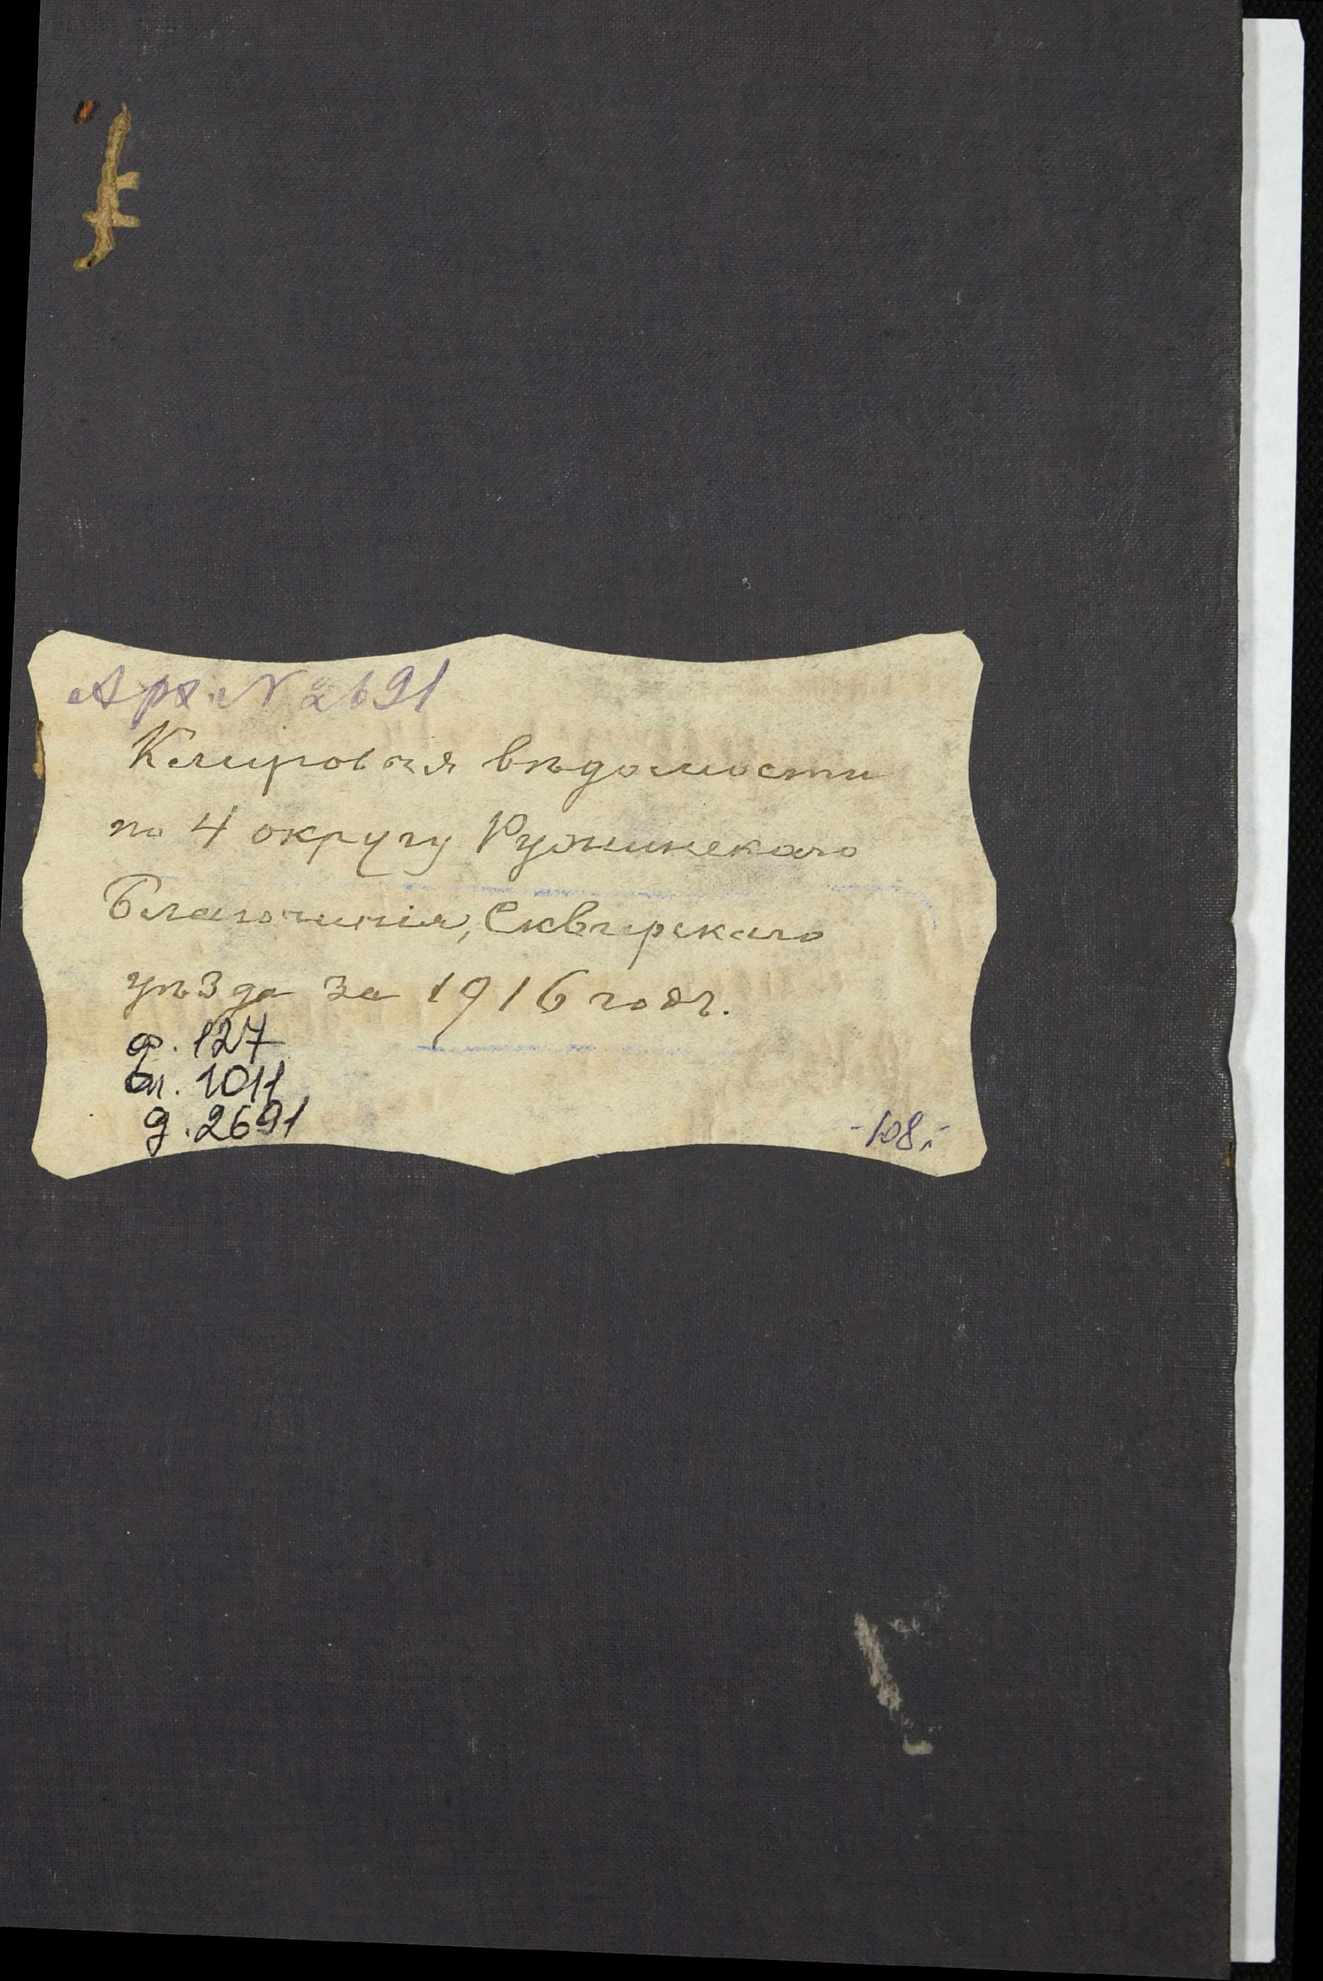 Арх. N 2691
Клировыя вѣдомости
по 4 округу Ружинскаго
Благочинія, Сквирскаго
уѣзда за 1916 годъ.
ф. 127
оп. 1011
д. 2691
-108,-